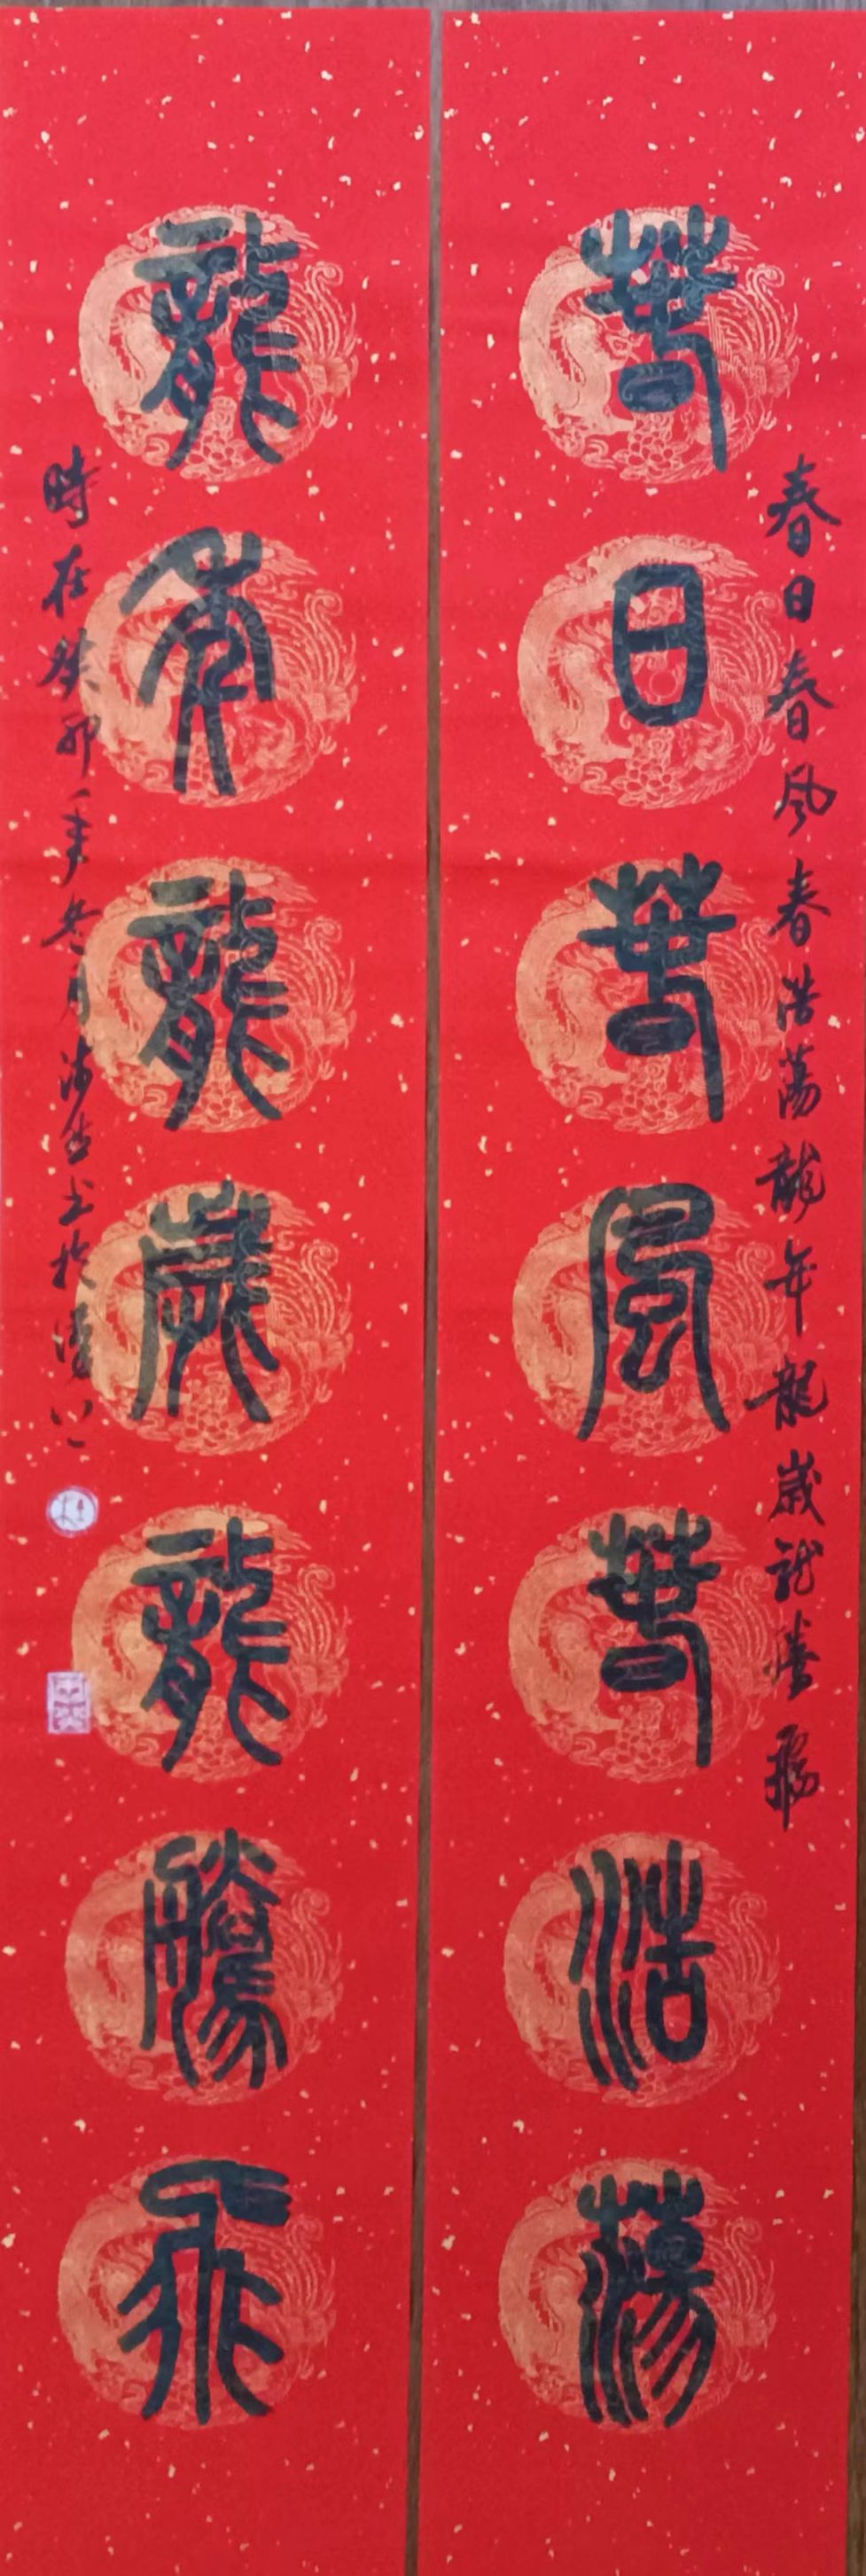 春日春風春浩蕩
春日春风春浩蕩龍年龍歲龍騰飛
龍年龍歲龍騰飛
時在癸卯年冬月書於